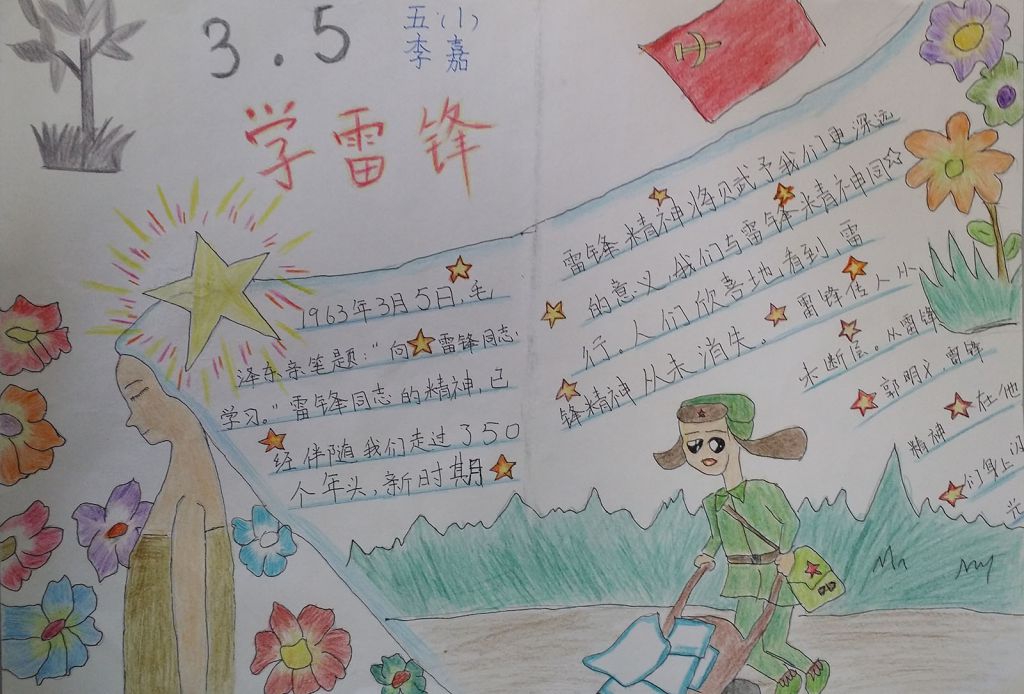 3.5
五(1)
李嘉
学雷锋
1963年3月5日,毛
泽东亲笔题:"向雷锋同志
学习。"雷锋同志的精神,已
经伴随我们走过350
个年头,新时期
雷锋精神将赋予我们更深远
的意义,我们与雷锋精神同
行。人们欣喜地看到,雷
锋精神从未消失。雷锋传人从
未断层。从雷锋
郭明义,雷锋
精神在他
们身上闪
光